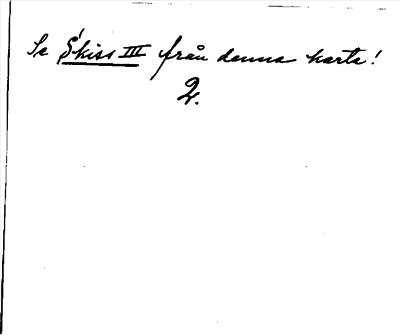 Se Skiss III från denna karta!
2.